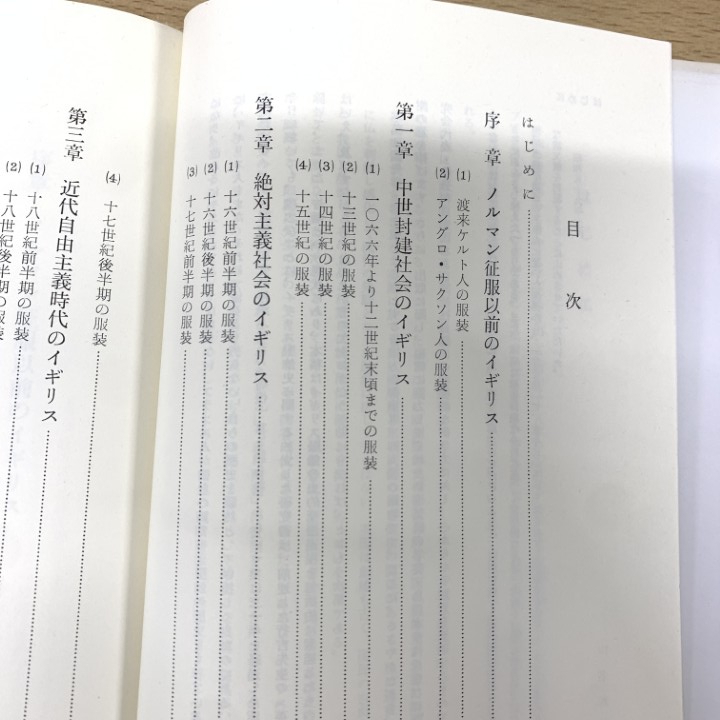 目次
はじめに
序章 ノルマン征服以前のイギリス
(1) 渡来ケルト人の服装
(2) アングロ・サクソン人の服装
第一章 中世封建社会のイギリス
(1) 一〇六六年より十二世紀末頃までの服装
(2) 十三世紀の服装
(3) 十四世紀の服装
(4) 十五世紀の服装
第二章 絶対主義社会のイギリス
(1) 十六世紀前半期の服装
(2) 十六世紀後半期の服装
(3) 十七世紀前半期の服装
(4) 十七世紀後半期の服装
第三章 近代自由主義時代のイギリス
(1) 十八世紀前半期の服装
(2) 十八世紀後半期の服装